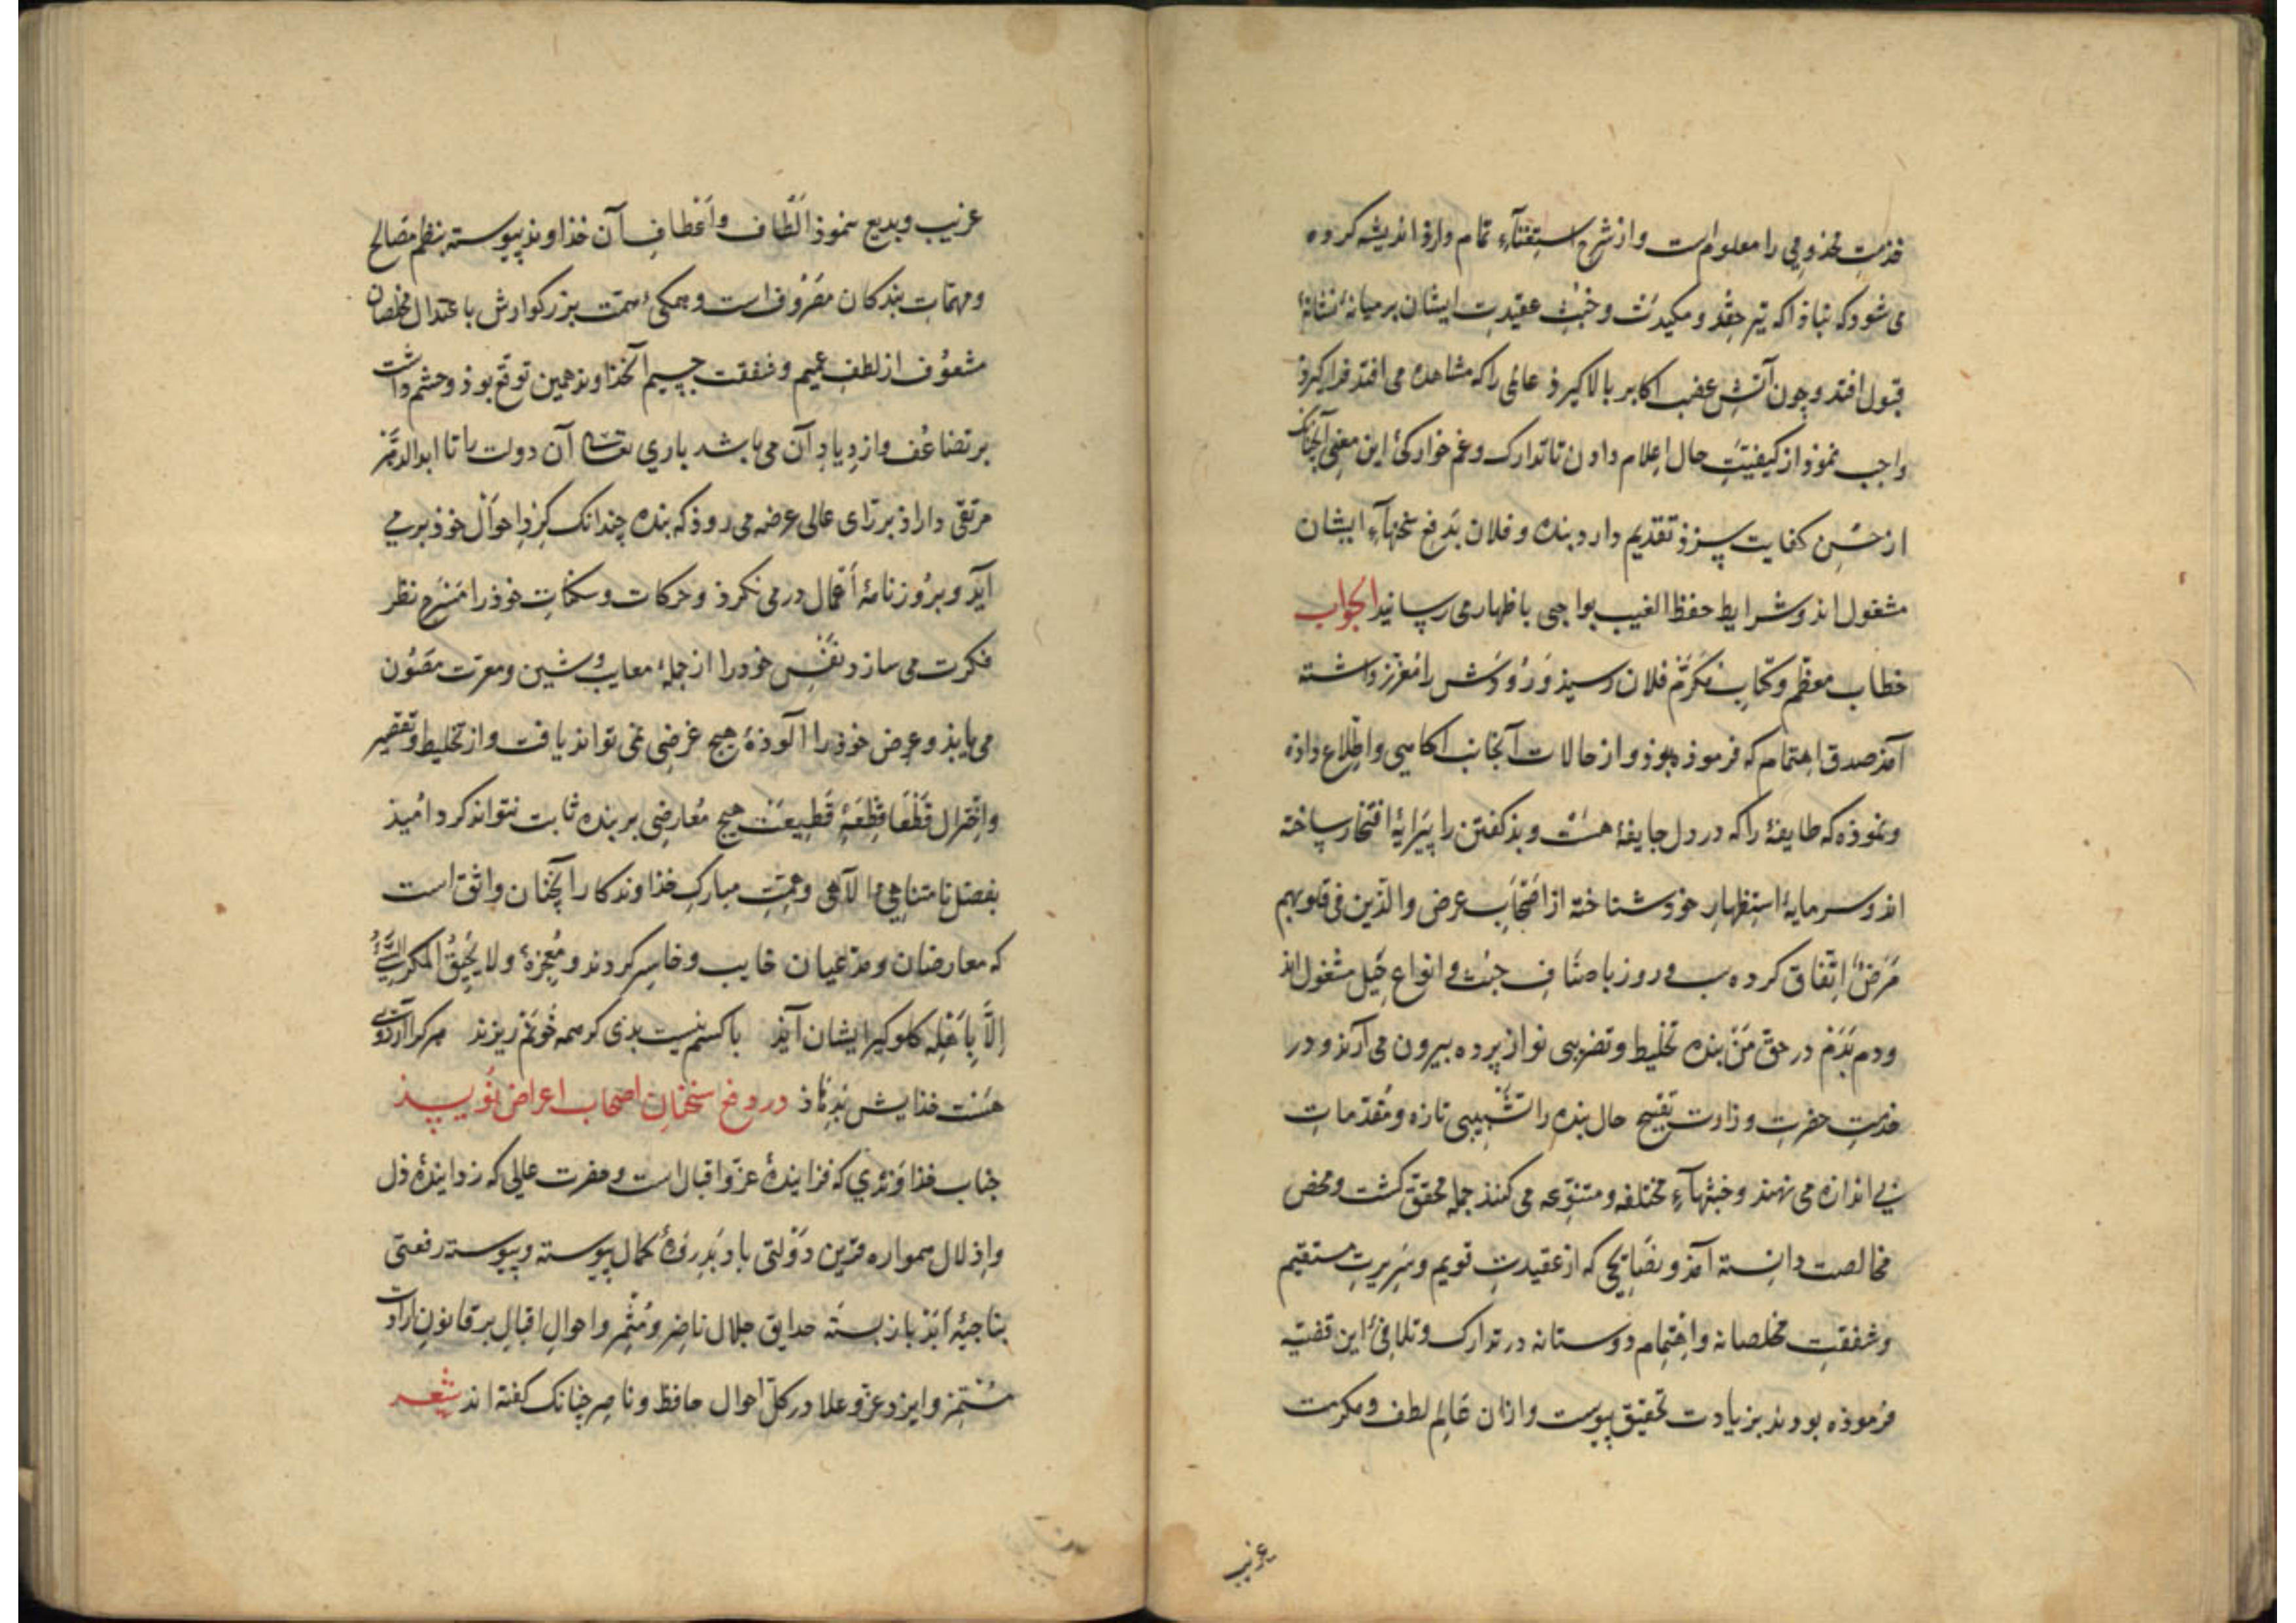 خدمتِ مخدومی را معلوم است و از شرح استغناء تمام دارد اندیشه کرده
می شود که نباذا که تیر حِقد و مکیدت و خبث عقیدتِ ایشان بر میانهٔ نشانهٔ
قبول افتد و چون آتش غضب اکابر بالا کیرذ عالمی را که مشاهده می افتد فرا کیرذ
واجب نموذ از کیفیتِ حال اعلام دادن تا تدارک و غم خوارکیٔ این معنی آنچنانک
از حُسنِ کفایت سزذ تقدیم دارد بنده و فلان بدفع سخنهآءِ ایشان
مشغول اند و شرایط حفظ الغیب بواجبی باظهار می رسانیذ الجواب
خطاب معظّم و کتابِ مکرّم فلان رسیذ وَرُوُدَش را معزّز داشته
آمذ صدق اهتمام که فرموذه بوذ و از حالات آنجانب آکاهی و اطلاع داذه
و نموذه که طایفهٔ را که در دل جایفهٔ هست و بذ کفتن را پیرایهٔ افتخار ساخته
اند و سرمایهٔ استظهارِ خود شناخته از اصحابِ عرض والّذین فی قلوبهم
مَرَضٌ اتفاق کرده شب و روز باصنافِ خبث و انواع حِیَل مشغول اند
و دم بَدَم در حق مَنْ بنده تخلیط و تضریبی نو از پرده بیرون می آرند و در
خدمتِ حضرتِ وزارت تقبیح حال بنده را تشبیبی تازه و مقدّماتِ
بی اندازه می نهند و خبثهآءِ مختلفه و متنوّعه می کنند جمله محقق کشت و محض
مخالصت دانسته آمذ و نصایحی که از عقیدتِ قویم و سَریرتِ مستقیم
و شفقتِ مخلصانه و اهتمام دوستانه در تدارک و تلافیٔ این قضیّه
فرموذه بودند بزیادت تحقیق پیوست و ازان عَالمِ لطف و مکرمت
غریب
غریب و بدیع ننموذ اَلطاف و اَعطافِ آن خذاوند پیوسته بنظم مصالح
و مهمّاتِ بندکان مصروف است و همکیٔ همت بزرکوارش باعتدال مخلصان
مشعوُف از لطف عمیم و شفقت جسیم آنخذاوند همین توقع بوذ و چشم داشت
بر تضاعُف و ازدیادِ آن می باشد باری تعالی آن دولت را تا ابد الدّهر
مرتقی داراذ بر رای عالی عرضه می روذ که بنده چندانک کِردِ احوال خوذ بر می
آیَد و بروزنامهٔ اَعمال در می نکرذ و حرکات و سکناتِ خوذ را مَسْرَح نظر
فکرت می سازد نفسِ خود را از جملهٔ معایب و شین و معرّت مصون
می یابذ و عرض خوذ را آلوذهٔ هیچ غرضی نمی تواند یافت و از تخلیط و تقصیر
قَطعًا قِطعَةً قَطِیعَتْ هیچ معارضی بر بنده ثابت نتواند کرد امیذ
بفضل نامتناهی الآهی و همّتِ مبارکِ خذاوندکار آنچنان واثق است
که معارضان و مدّعیان خایب و خاسر کردند و مُعجزهٔ ولا یَحیقُ المَکرُ السَّیِّئُ
اِلَّا بِاَهلِهِ کلوکیر ایشان آیذ با کسم نیست بدی کر همه خونم ریزند هر کرا آرزوی
هست خذایش بدهاذ در دفع سخنانِ اصحاب اعراض نویسذ
جناب خذاوَندی که فزایندهٔ عزّ و اقبال است و حضرت عالی که زدایندهٔ ذل
و اِذلال همواره قرین دَوْلتی باد بَذروهٔ کمال پیوسته و پیوسته رفعتی
بناحیهٔ اَبَد باز بسته حدایقِ جلال ناضِر و مُثمِر و احوالِ اقبال بر قانونِ ارادت
مُسْتَمِر و ایزد عزّ و علا در کلّ احوال حافظ و ناصِر چنانک کفته اند شعر